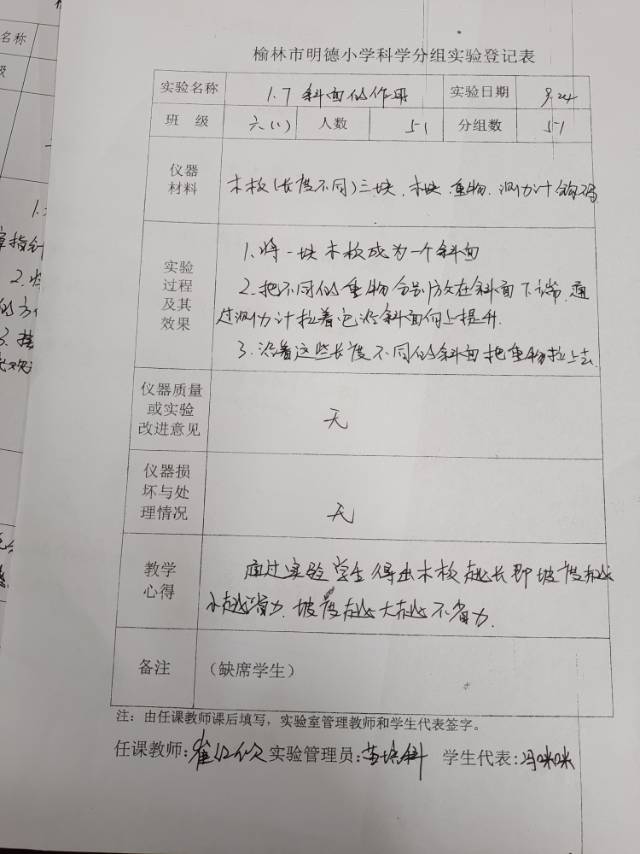 榆林市明德小学科学分组实验登记表
实验名称 1.7 斜面的作用 实验日期 9.24
班 级 六(1) 人数 51 分组数 51
仪器材料 木板(长度不同)三块、木块、重物、测力计 钩码
实验过程及其效果
1. 将一块木板成为一个斜面
2. 把不同的重物分别放在斜面下端，通
过测力计拉着它沿斜面向上提升.
3. 沿着这些长度不同的斜面把重物拉上去
仪器质量或实验改进意见 无
仪器损坏与处理情况 无
教学心得
通过实验学生得出木板越长即坡度越
小越省力.坡度越大越不省力.
备注 (缺席学生)
注：由任课教师课后填写，实验室管理教师和学生代表签字。
任课教师: 实验管理员: 学生代表:冯咪咪